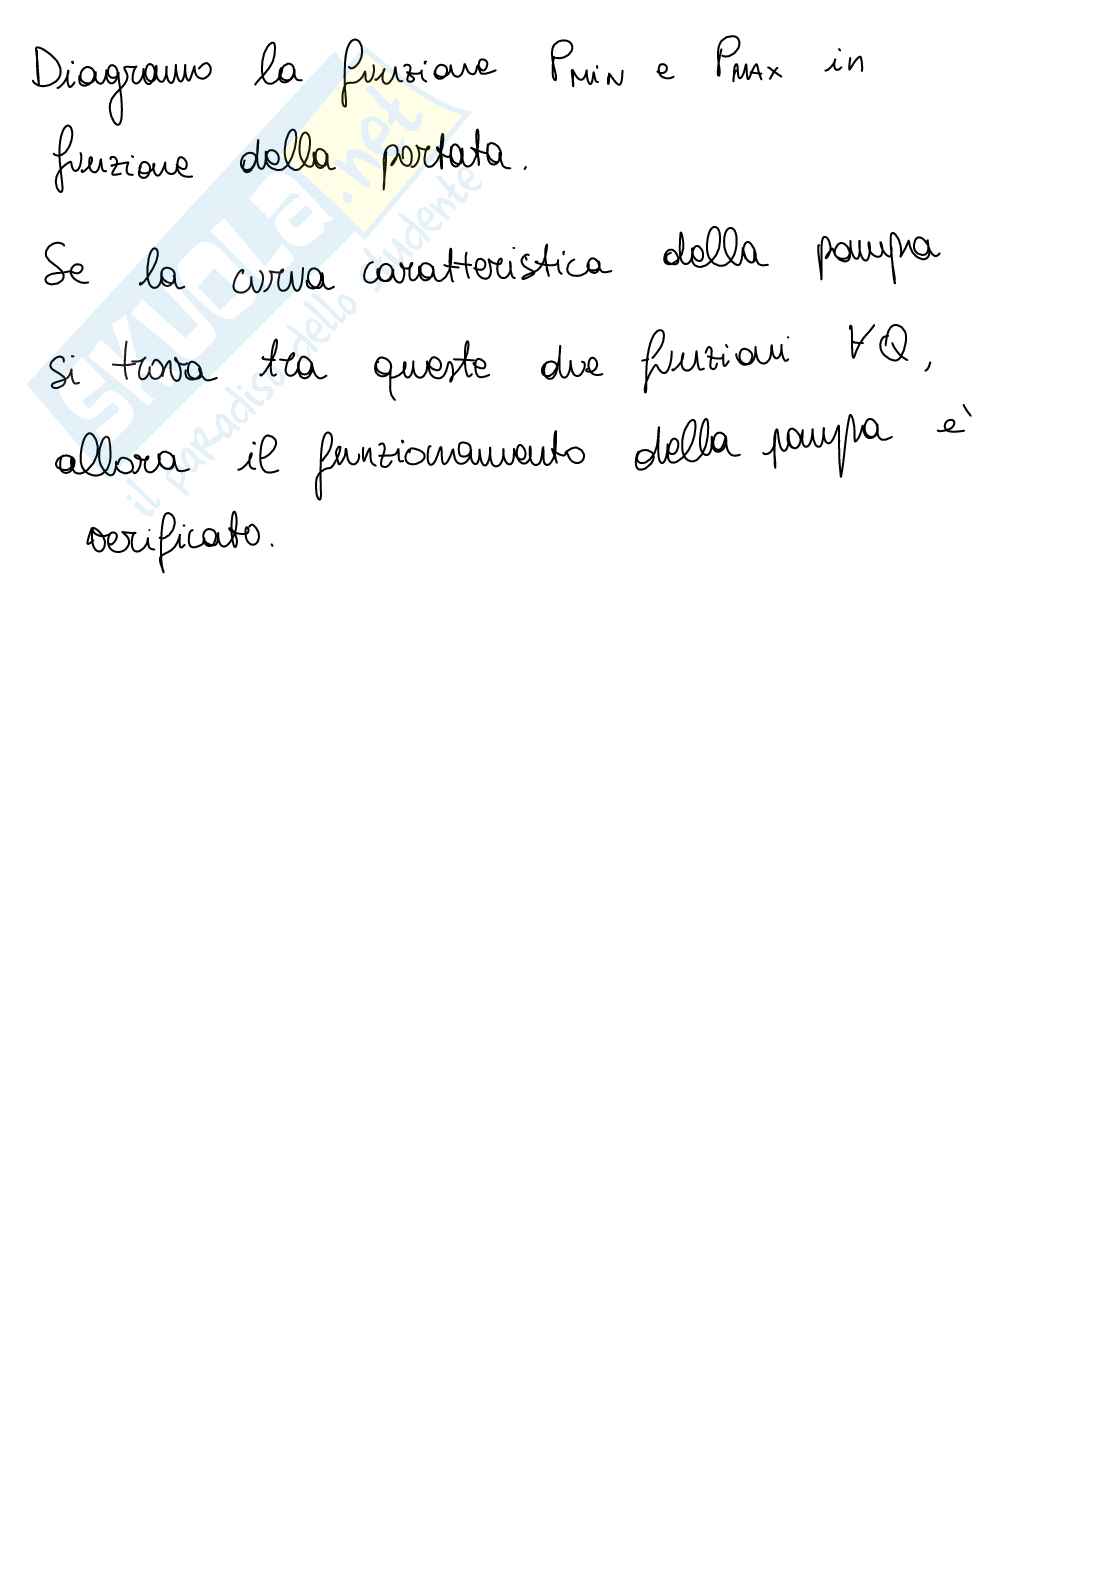 Diagrammo la funzione PMIN e PMAX in
funzione della portata.
Se la curva caratteristica della pompa
si trova tra queste due funzioni ∀Q,
allora il funzionamento della pompa e'
verificato.
SKUOLA.net
il paradiso dello studente